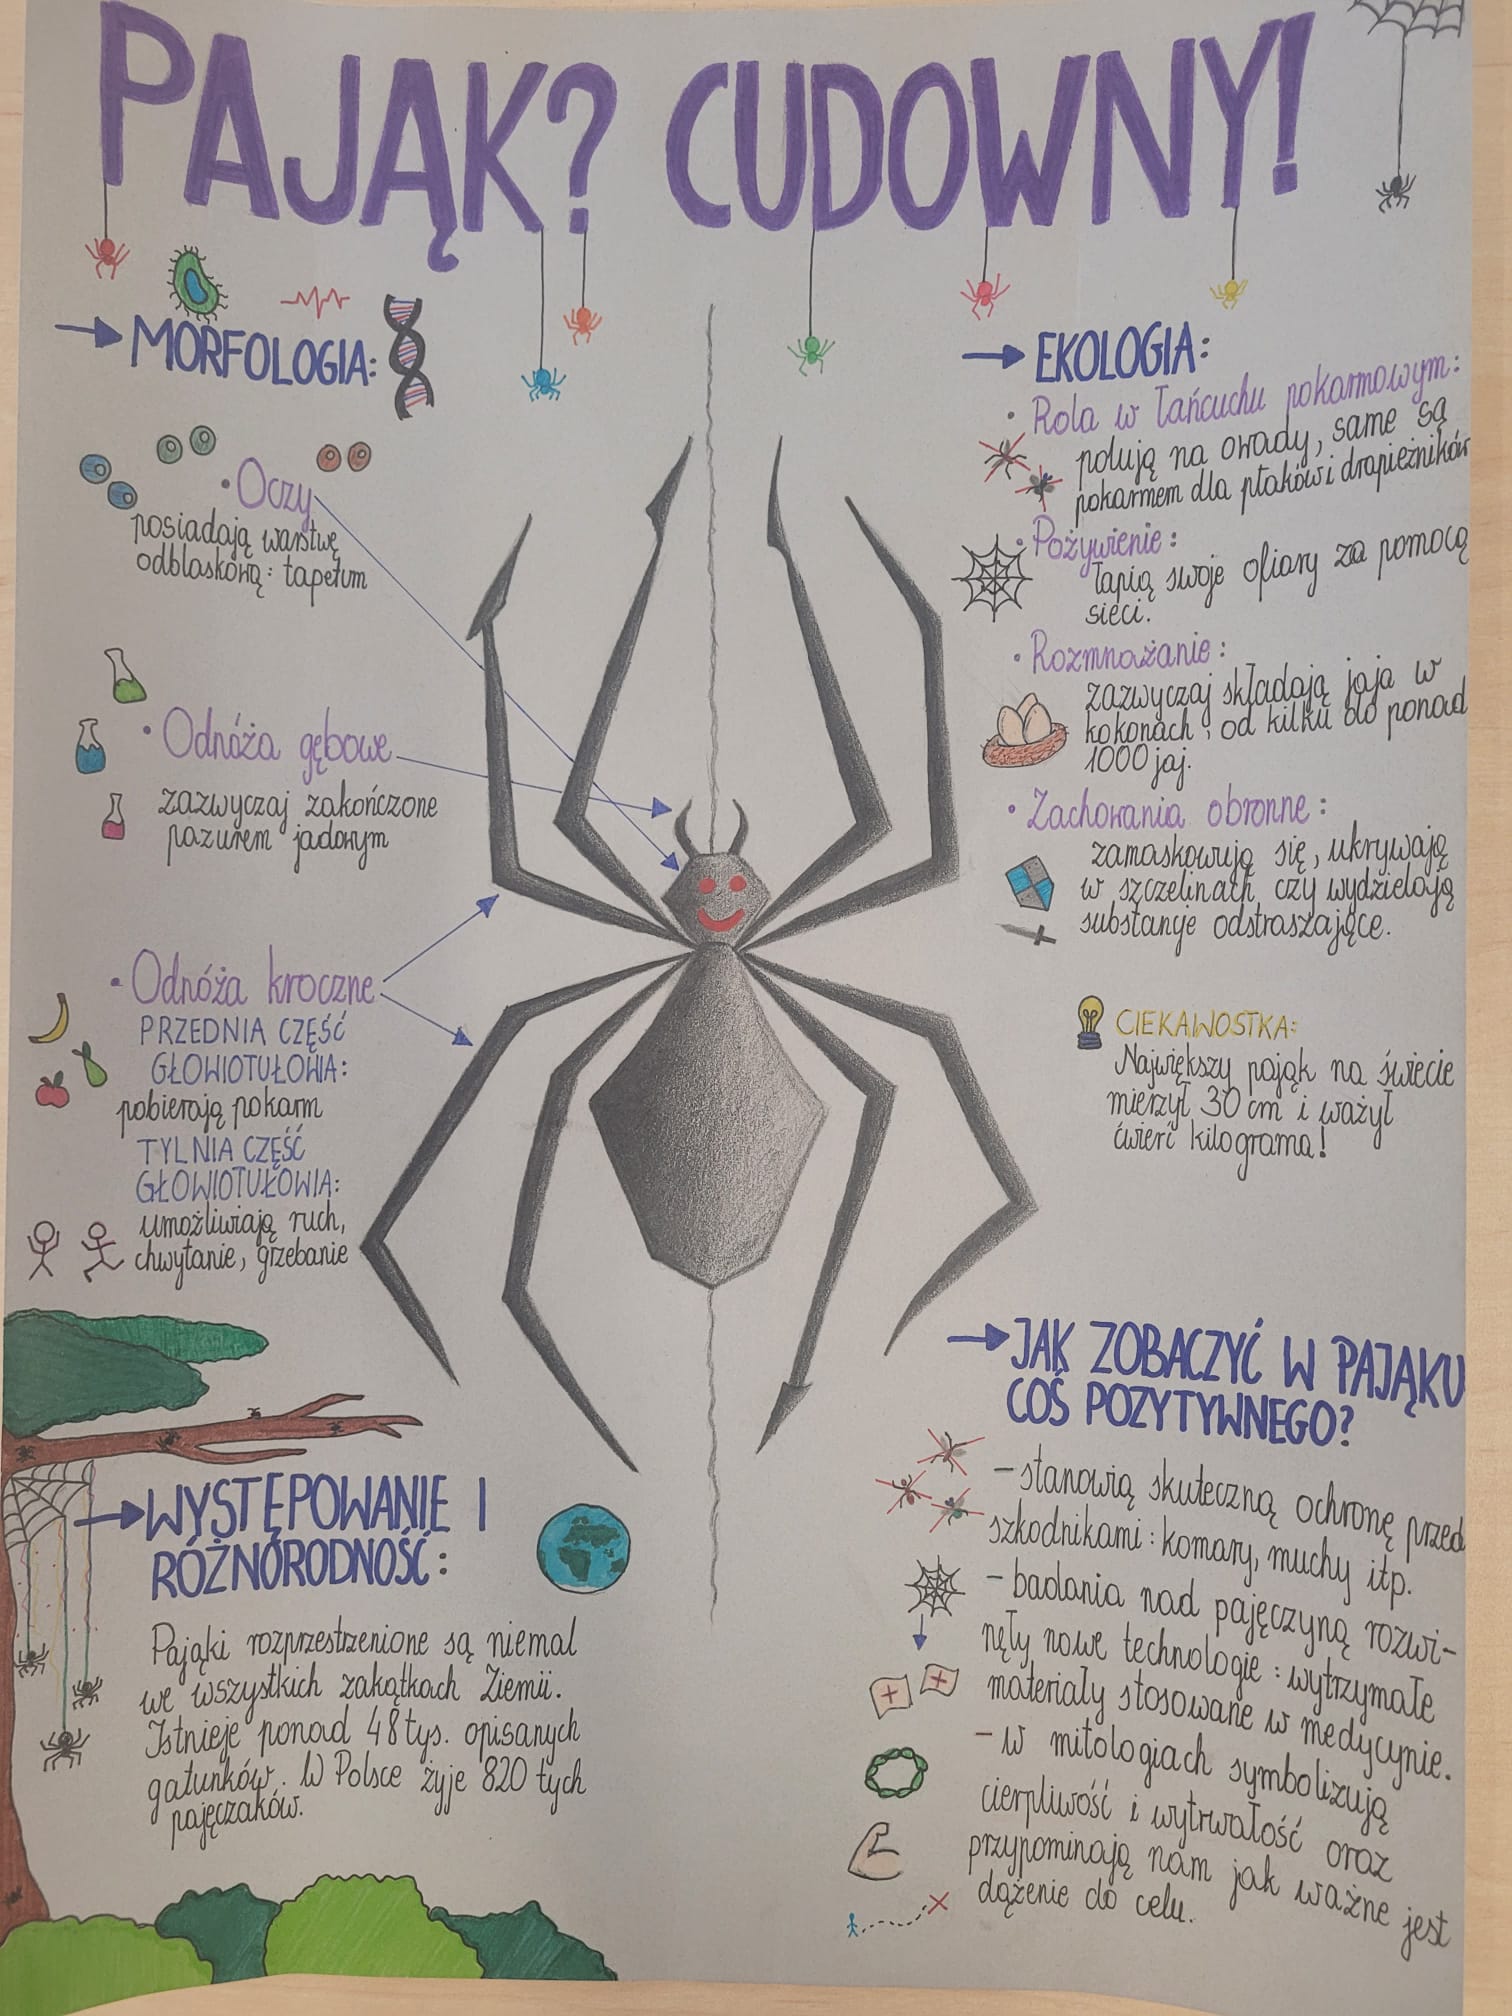 PAJĄK? CUDOWNY!
MORFOLOGIA:
• Oczy
posiadają warstwę
odblaskową: tapetum
• Odnóża gębowe
zazwyczaj zakończone
pazurem jadowym
• Odnóża kroczne
PRZEDNIA CZĘŚĆ
GŁOWIOTUŁOWIA:
pobierają pokarm
TYLNIA CZĘŚĆ
GŁOWIOTUŁOWIA:
umożliwiają ruch,
chwytanie, grzebanie
WYSTĘPOWANIE I
RÓŻNORODNOŚĆ:
Pająki rozprzestrzenione są niemal
we wszystkich zakątkach Ziemii.
Istnieje ponad 48 tys. opisanych
gatunków. W Polsce żyje 820 tych
pajęczaków.
EKOLOGIA:
• Rola w łańcuchu pokarmowym:
polują na owady, same są
pokarmem dla ptaków i drapieżników
• Pożywienie:
łapią swoje ofiary za pomocą
sieci.
• Rozmnażanie:
zazwyczaj składają jaja w
kokonach, od kilku do ponad
1000 jaj.
• Zachowania obronne:
zamaskowują się, ukrywają
w szczelinach czy wydzielają
substancje odstraszające.
CIEKAWOSTKA:
Największy pająk na świecie
mierzył 30 cm i ważył
ćwierć kilograma!
JAK ZOBACZYĆ W PAJĄKU
COŚ POZYTYWNEGO?
- stanowią skuteczną ochronę przed
szkodnikami: komary, muchy itp.
- badania nad pajęczyną rozwi-
nęły nowe technologie: wytrzymałe
materiały stosowane w medycynie.
- w mitologiach symbolizują
cierpliwość i wytrwałość oraz
przypominają nam jak ważne jest
dążenie do celu.